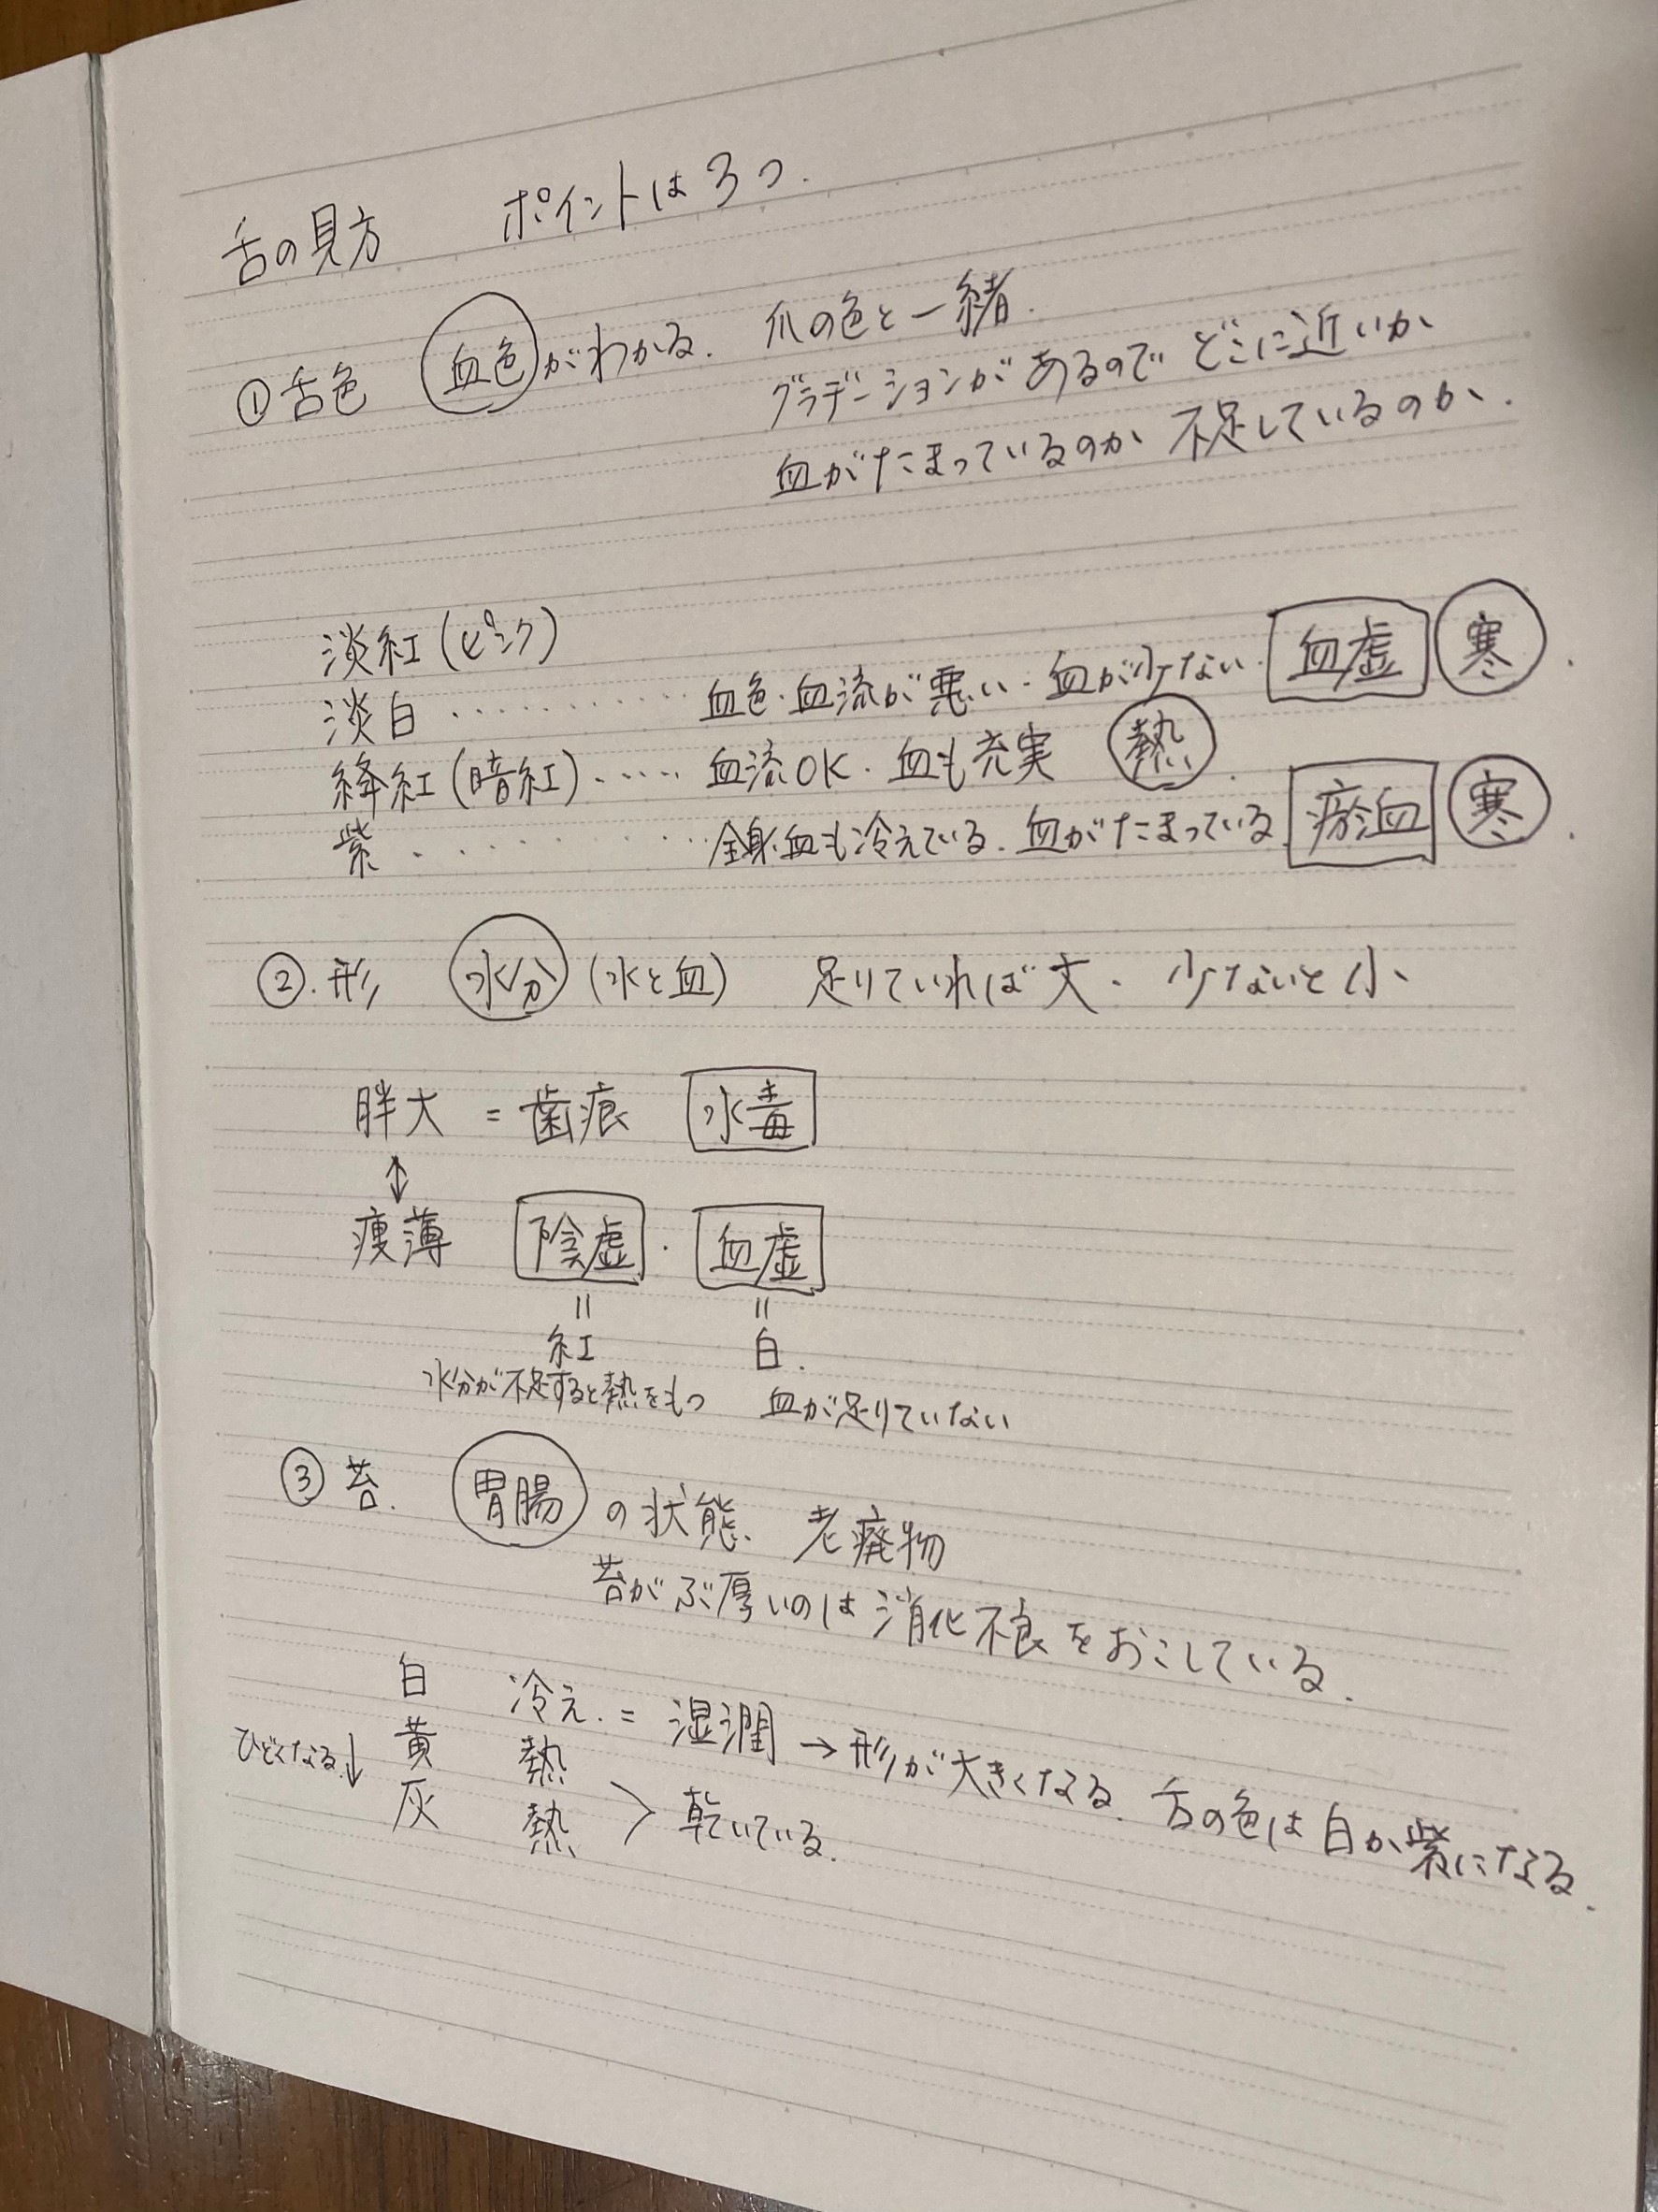 舌の見方　ポイントは3つ.
①舌色　血色がわかる.　爪の色と一緒.
グラデーションがあるので どこに近いか
血がたまっているのか 不足しているのか.
淡紅(ピンク)
淡白 ・・・・・・・・・・ 血色・血流が悪い・血が少ない. 血虚 寒.
絳紅(暗紅)・・・・・ 血流OK. 血も充実 熱.
紫・・・・・・・・ 全身血も冷えている. 血がたまっている. 瘀血 寒.
②.形　水分(水と血)　足りていれば大. 少ないと小
胖大 = 歯痕 水毒
↕
痩薄 陰虚・血虚
= =
紅 白.
水分が不足すると熱をもつ 血が足りていない
③苔. 胃腸の状態. 老廃物
苔がぶ厚いのは消化不良をおこしている.
白 冷え. = 湿潤 → 形が大きくなる. 舌の色は白か紫になる.
ひどくなる↓ 黄 熱
灰 熱 > 乾いている.